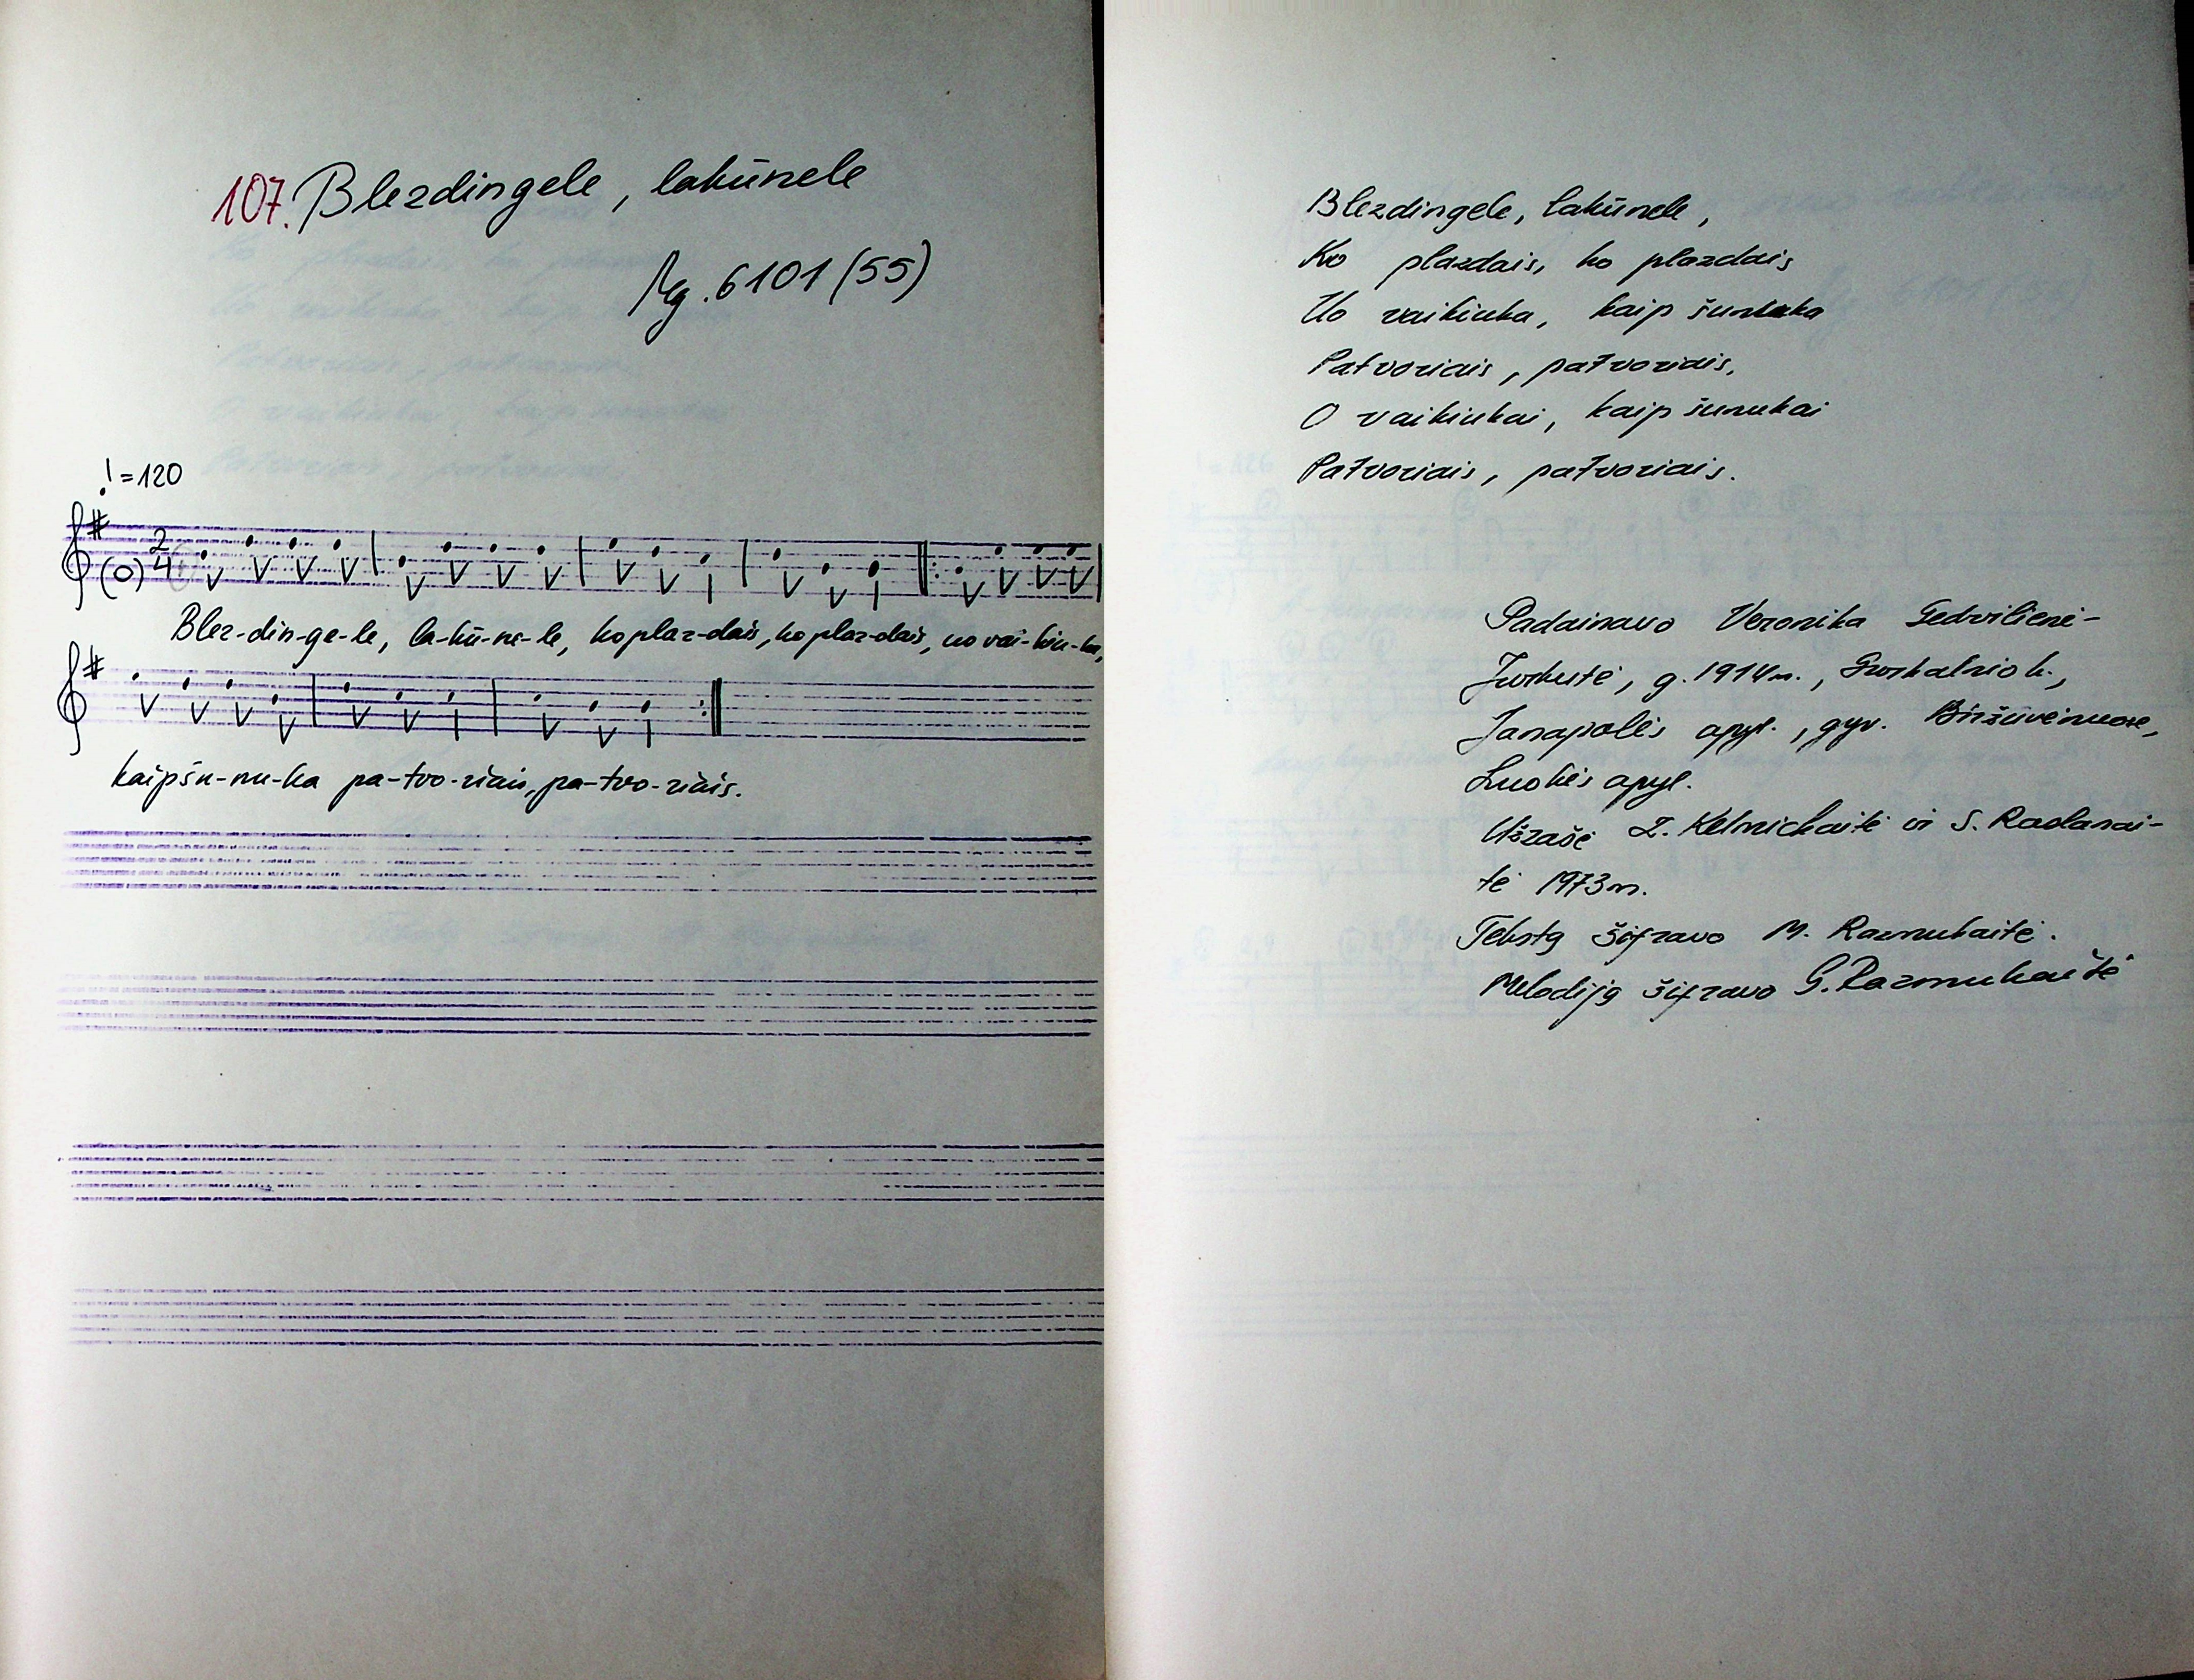 107. Blezdingele, lakūnele
Mg. 6101 (55)
=120
2
4
Blez-din-ge-le, la-kū-ne-le, ko plaz-dais, ko plaz-dais, uo vai-kiu-ka,
kaip šu-nu-ka pa-tvo-riais, pa-tvo-riais.
Blezdingele, lakūnele,
Ko plazdais, ko plazdais
Uo vaikiuka, kaip šunuka
Patvoriais, patvoriais,
O vaikiukai, kaip šunukai
Patvoriais, patvoriais.
Padainavo Veronika Gedvilienė-
Jurkutė, g. 1914 m., k.,
Janapolės apyl., gyv. Biržuvėnuose,
Luokės apyl.
Užrašė Z. Kelmickaitė ir S. Radanai-
tė 1973 m.
Tekstą šifravo M. Razmukaitė.
Melodiją šifravo G. Razmukaitė